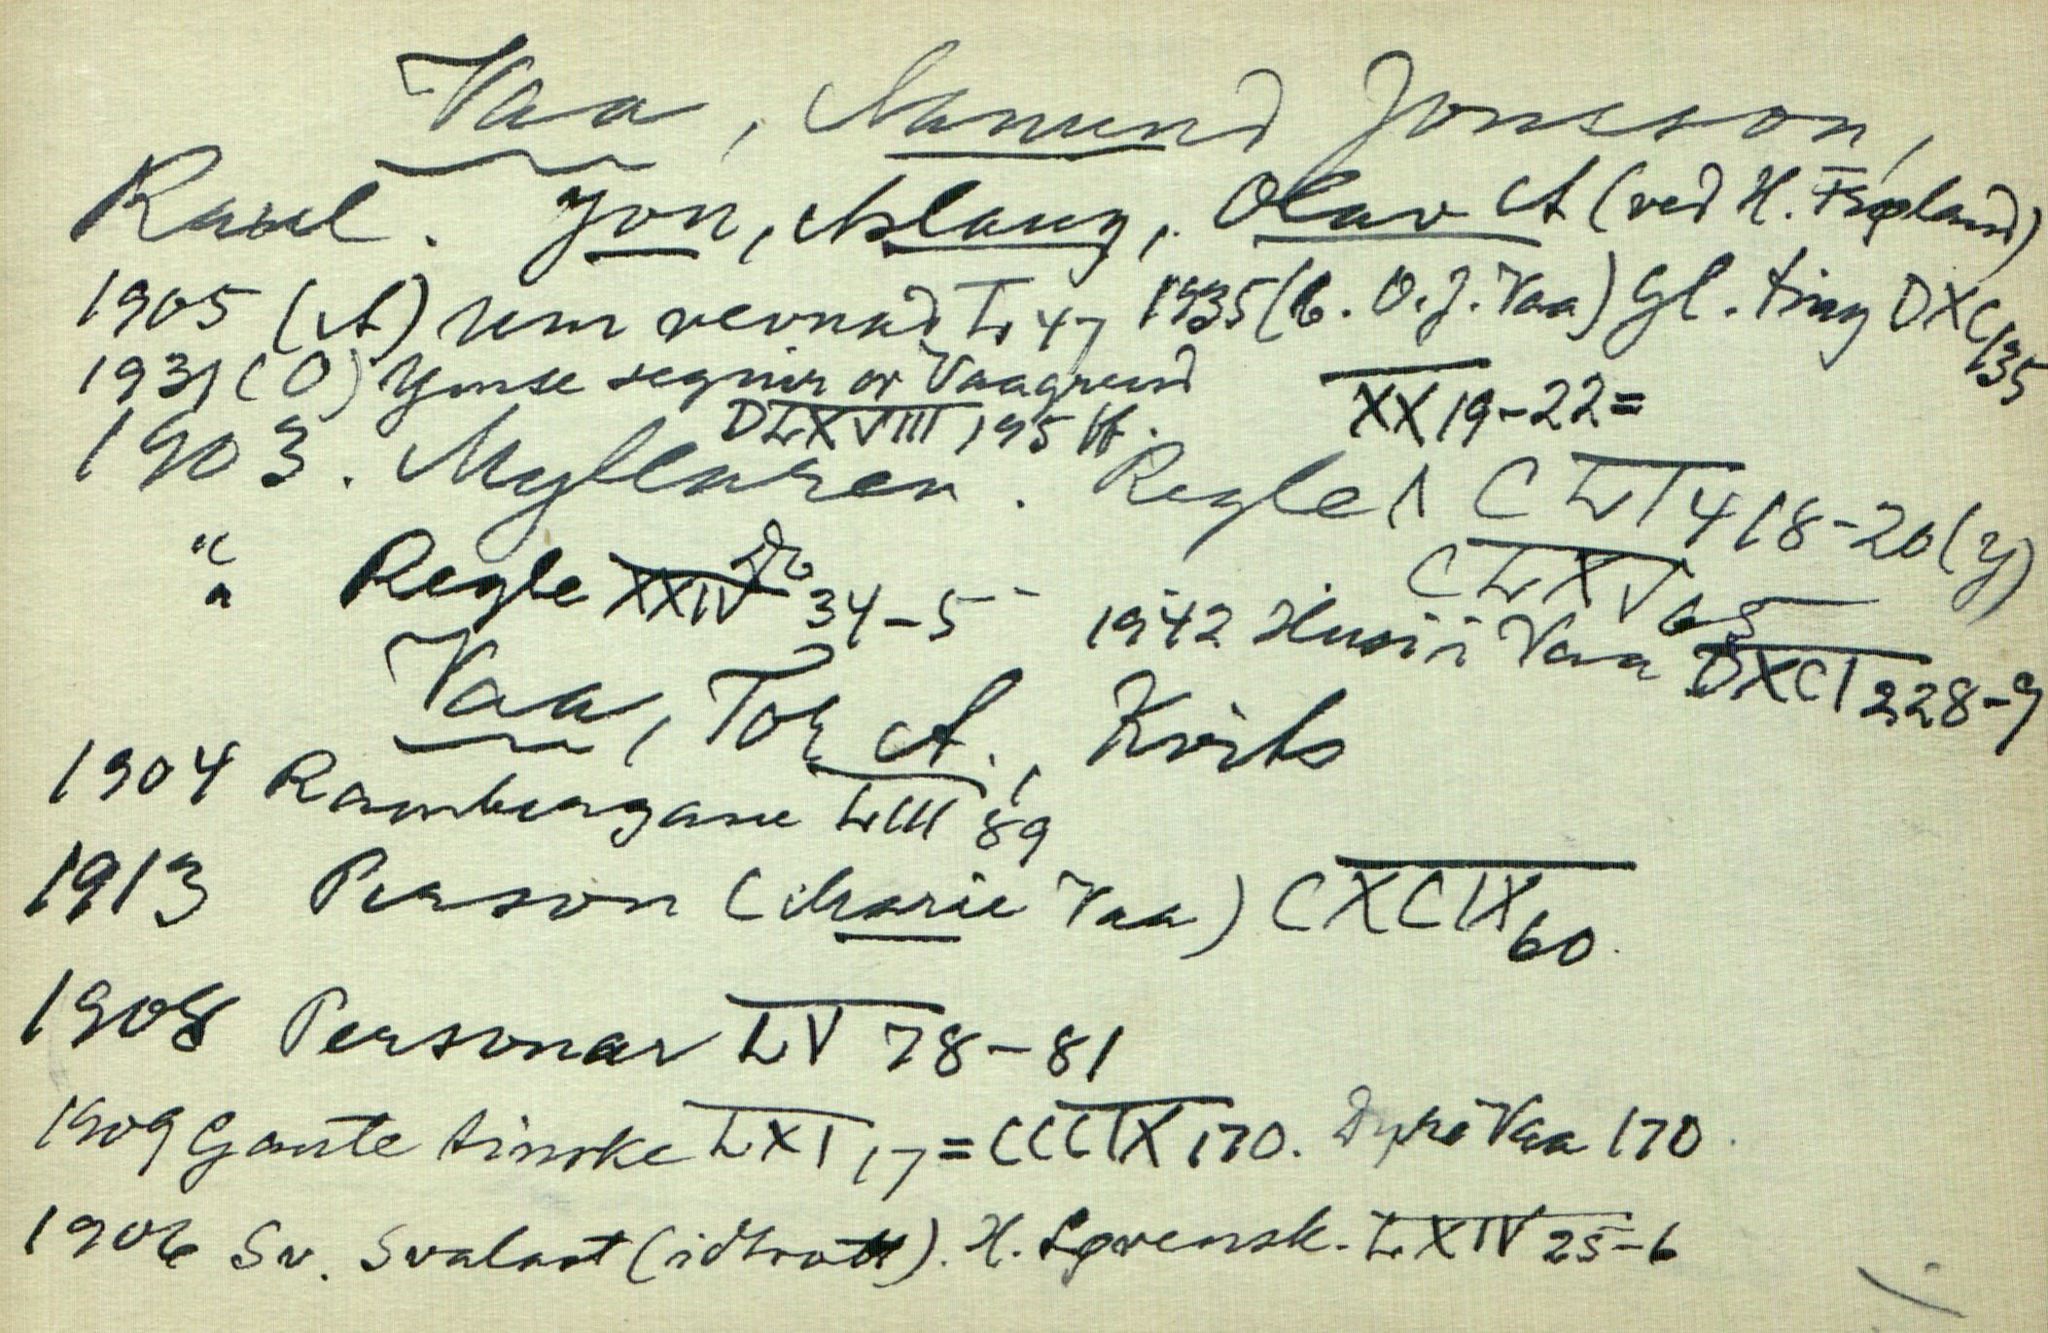 Vaa, Aamund Jonsson,
Raul. Jon, Aslaug, Olav A (ved H. Fröland)
1905 (A) um vevnad L 47 1935 (b. O. J. Vaa) Gl. ting DXC 135
1931 (O) Ymse segnir or Vaagrend
DLXVIII 195 ff. XX 19-22 =
1903. Myllaren. Regle 1 CLI 418-20 (y)
" Regle XXIV 34-5 CLXV 65
1942 Husi i Vaa DXCI 228-9
Vaa, Tor A., Kvits
1904 Rambergane LIII 89
1913 Person (Marie Vaa) CXCIX 60
1908 Personar LV 78-81
1909 Gaute tinske LXI 17 = CCCIX 170. Dyre Vaa 170
1906 Sv. Svalast (idrott). H. Lørensk. LXIV 25-6